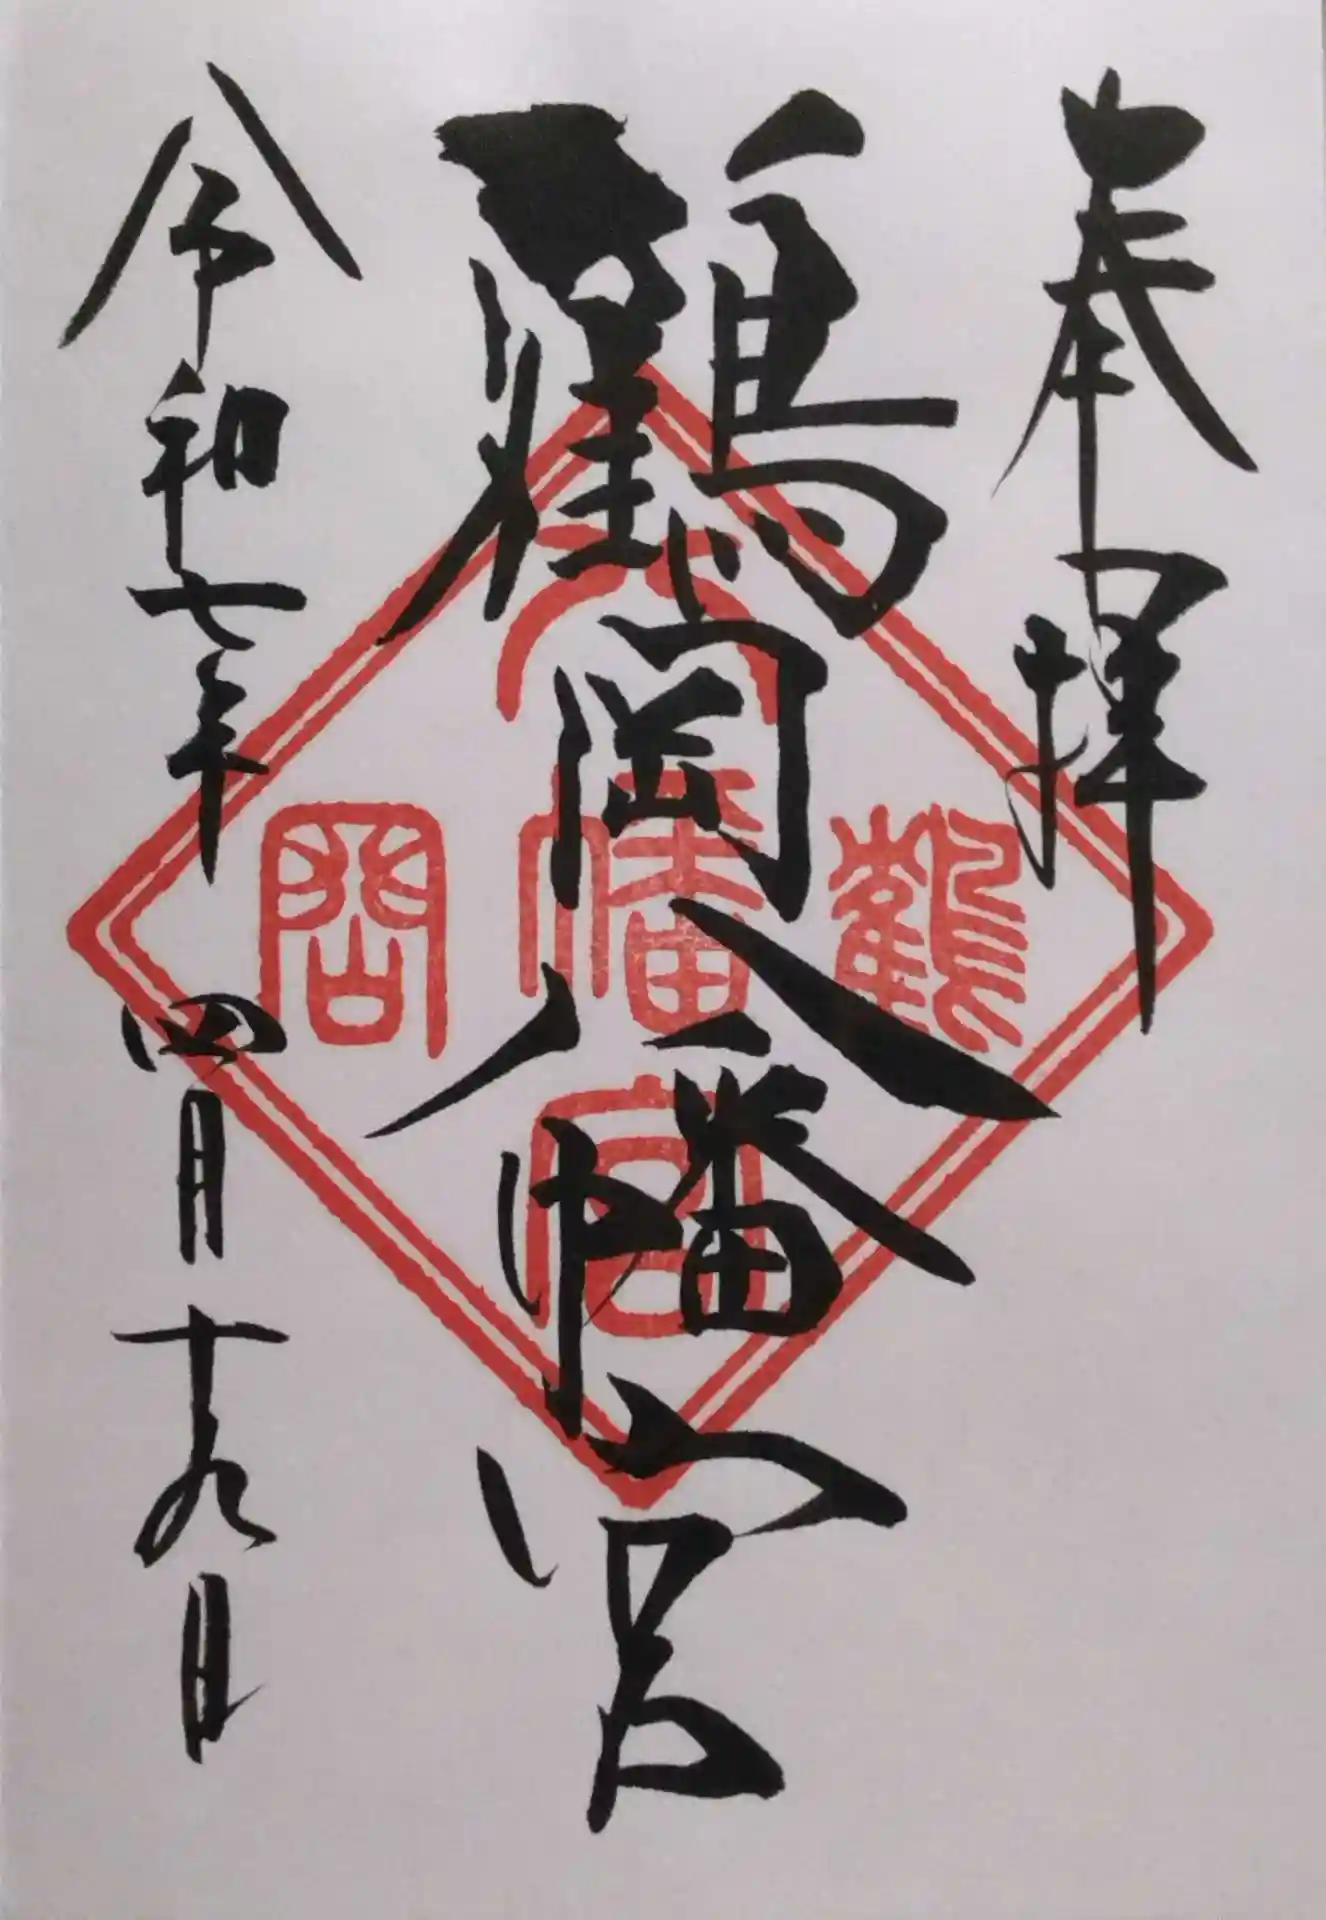 奉拝
鶴岡八幡宮
令和七年四月十九日
八
鶴幡岡
宮